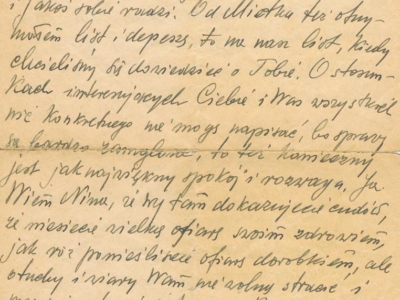 i jakoś sobie radzi. Od Mietka też otrzy-
małem list i depeszę, to na nasz list, kiedy
chcieliśmy się dowiedzieć o Tobie. O stosun-
kach interesujących Ciebie i Was wszystkich
nic konkretnego nie mogę napisać, bo sprawy
są bardzo zamglone, to też konieczny
jest jak największy spokój i rozwaga. Ja
Wiem Nina, że wy tam dokazujecie cudów,
że niesiecie wielką ofiarę swoim zdrowiem,
jak już ponieśliście ofiarę dorobkiem, ale
otuchy i wiary Wam nie wolno stracić i